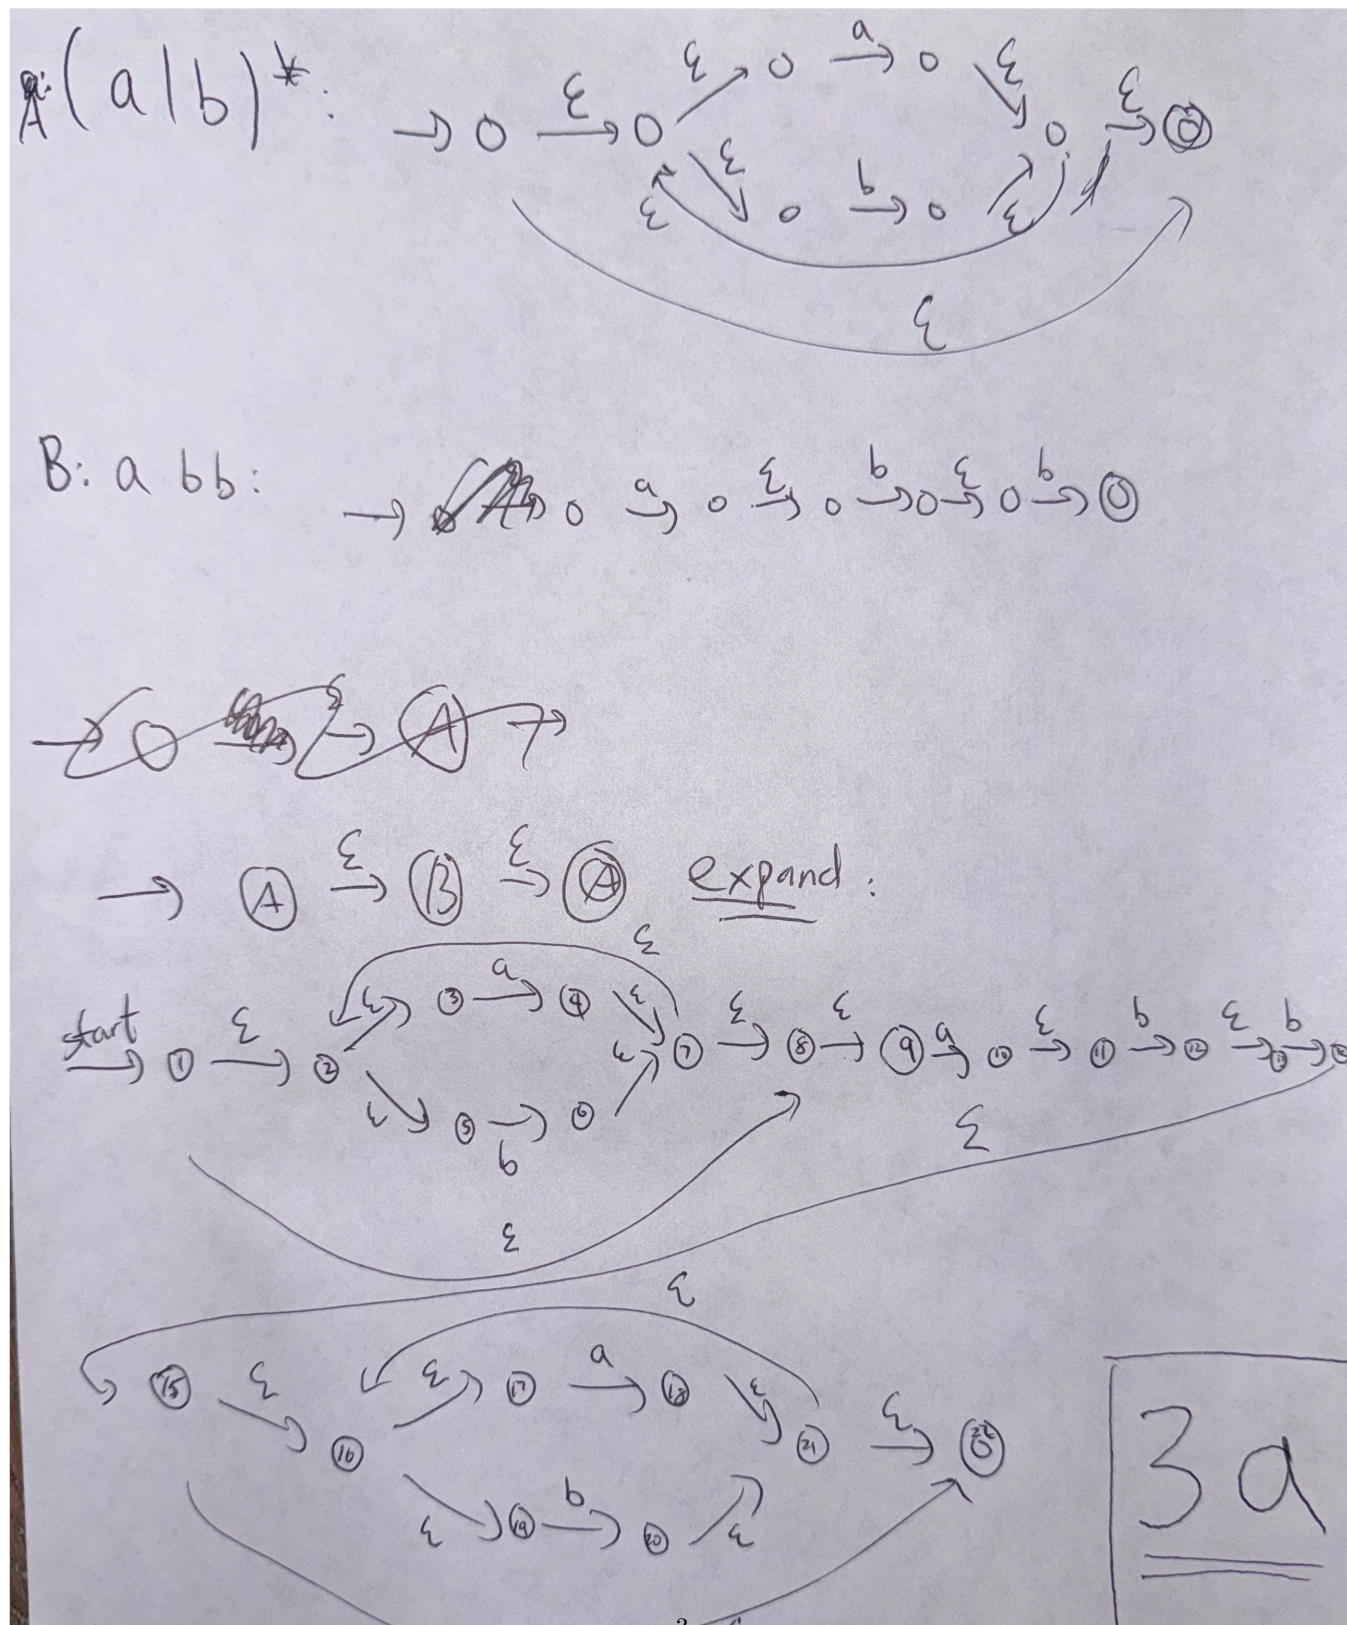 A: (a|b)*:
ε ε a ε ε
ε b ε
ε
ε
B: a bb:
a ε b ε b
ε A
A ε B ε A expand:
ε
start 1 ε 2 ε 3 a 4 ε 7 ε 8 ε 9 a 10 ε 11 b 12 ε 13 b
ε 5 b 6 ε
ε
ε
ε
15 ε 16 ε 17 a 18 ε 21 ε 22
ε 19 b 20 ε
3a